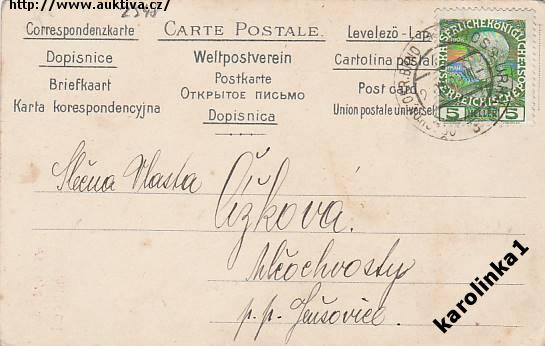 http://www.auktiva.cz/
2598
Correspondenzkarte
Dopisnice
Briefkaart
Karta korespondencyjna
CARTE POSTALE.
Weltpostverein
Postkarte
ОТКРЫТОЕ ПИСЬМО
Dopisnica
Levelező-Lap
Cartolina postale
Post card
Union postale universelle
5 HELLER 5
Slečna Vlasta
Čížkova.
Mlčochvosty
p. p. Jeusovice.
karolinka1